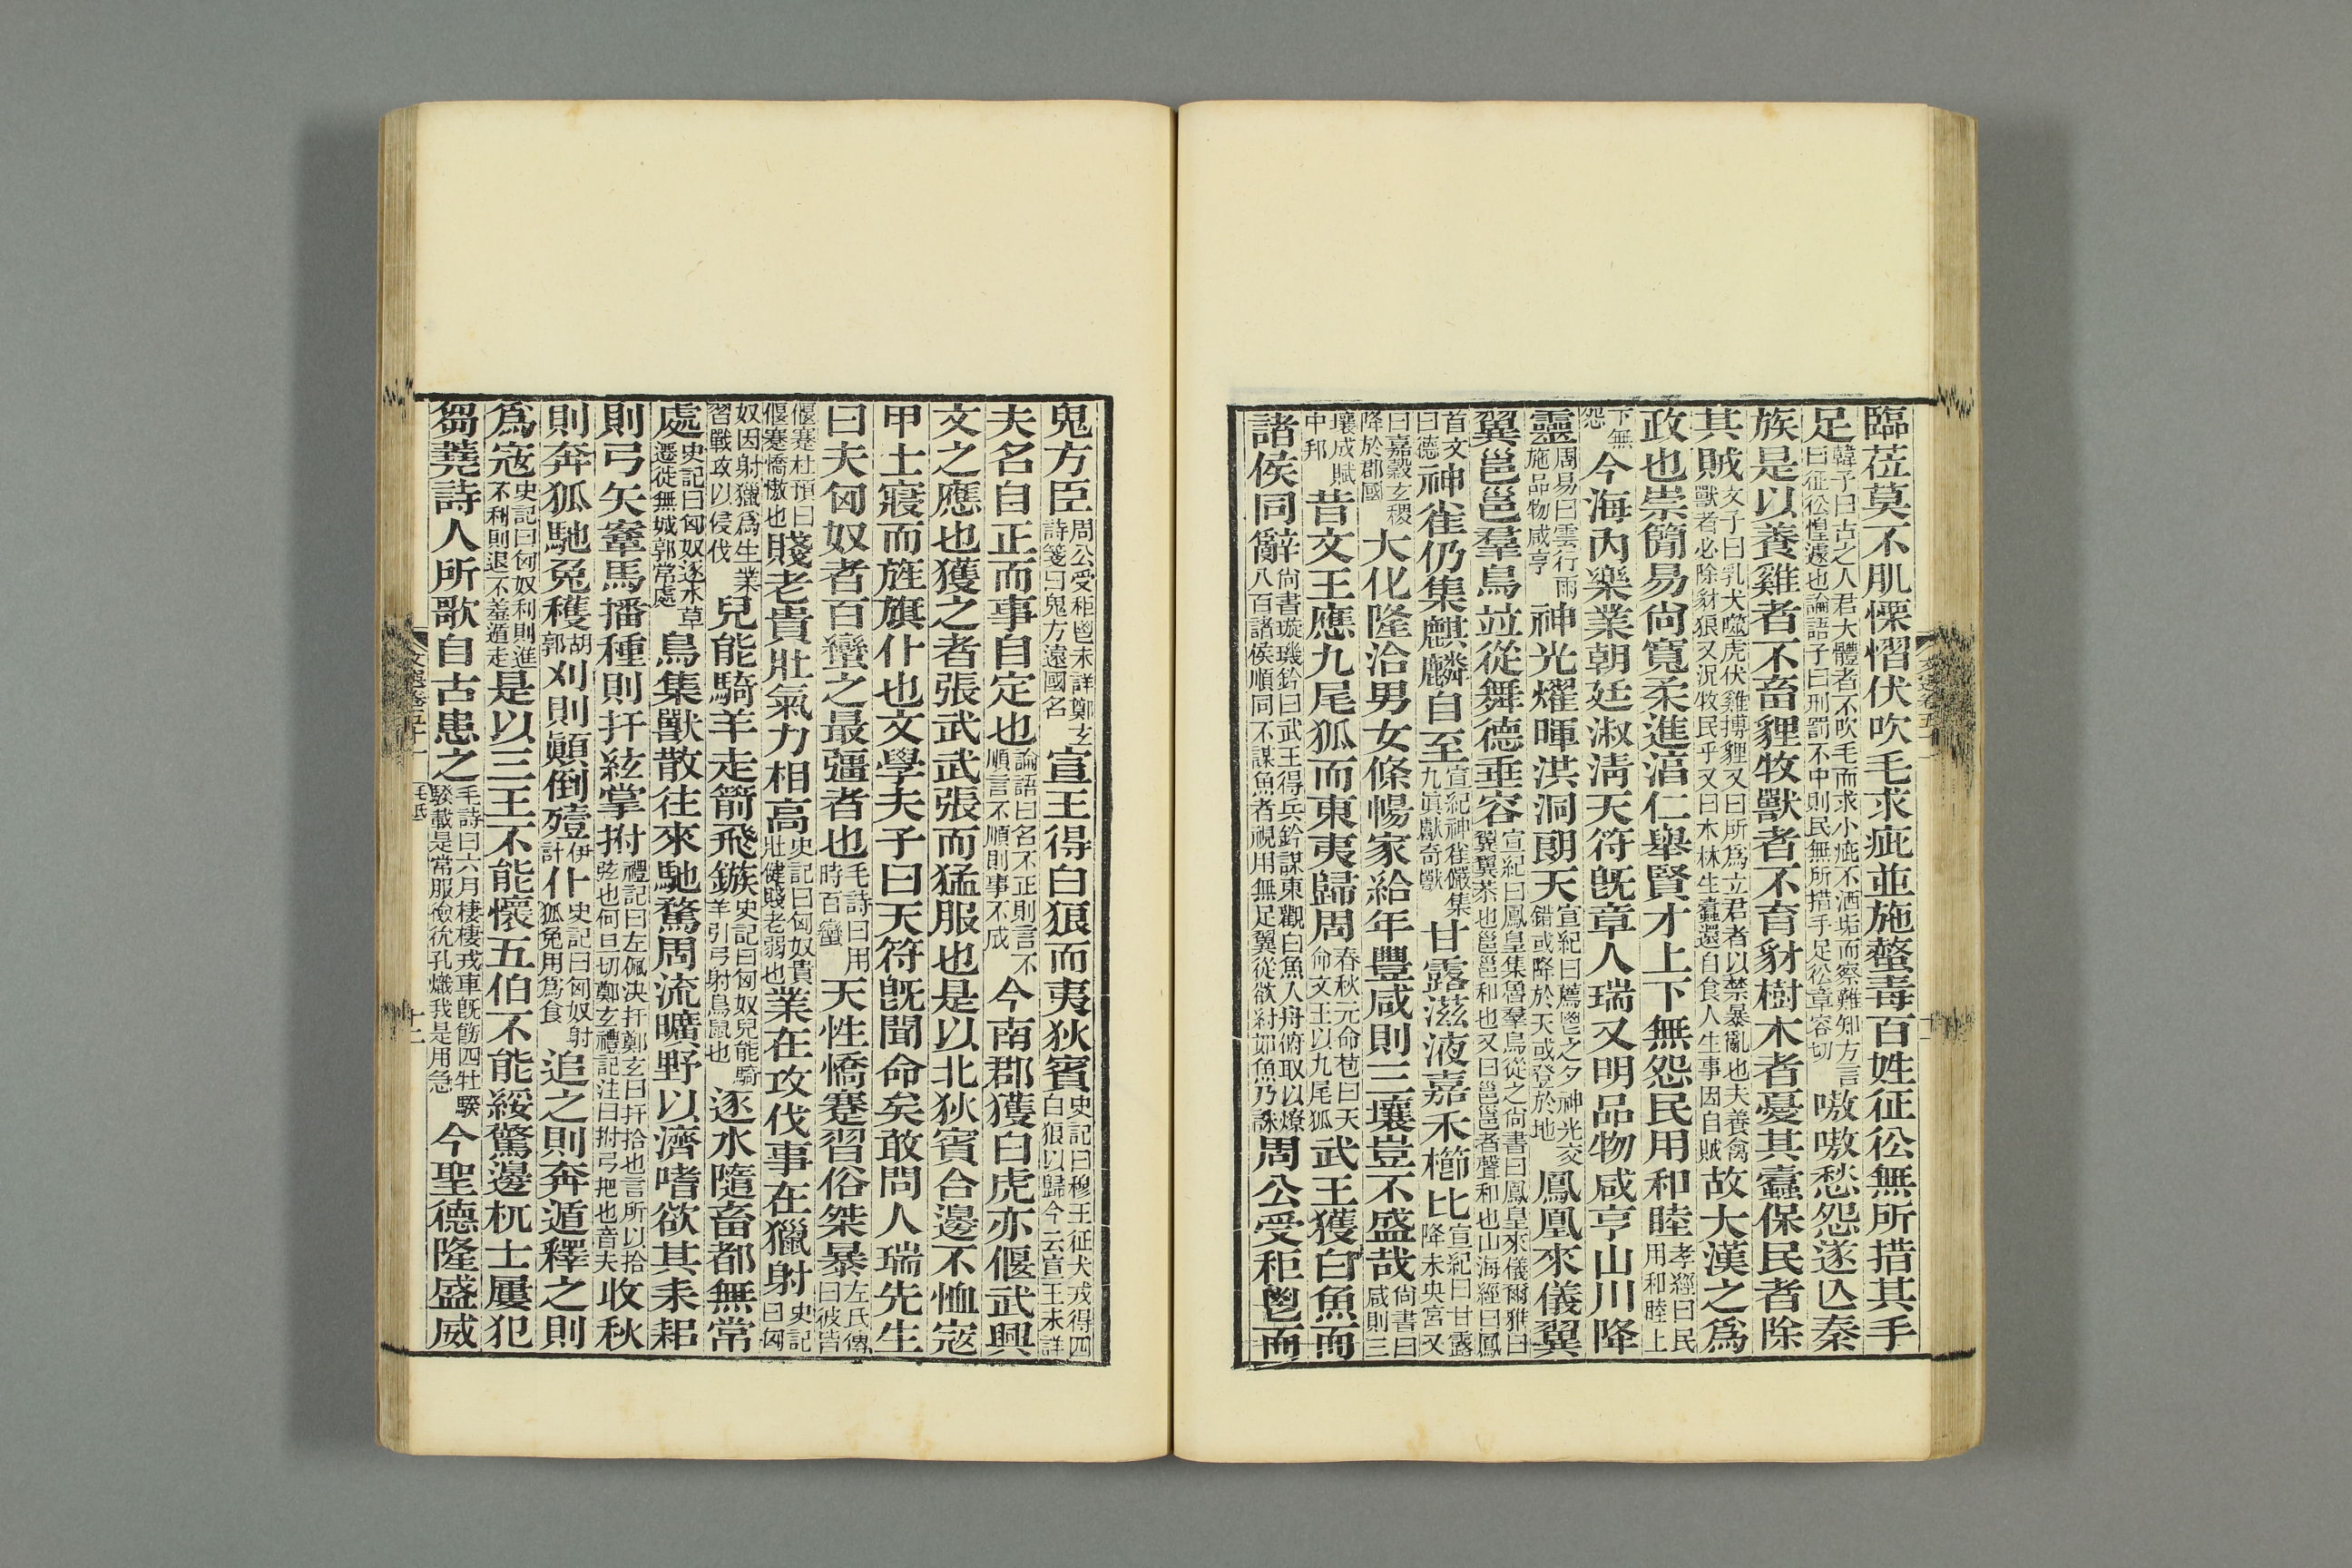 臨莅莫不肌慄慴伏吹毛求疵並施螫毒百姓征彸無所措其手
足韓子曰古之人君大體者不吹毛而求小疵不洒垢而察難知方言曰征彸惶遽也論語子曰刑罰不中則民無所措手足彸章容切嗷嗷愁怨遂亾秦
族是以養雞者不畜貍牧獸者不育豺樹木者憂其蠹保民者除
其賊文子曰乳犬噬虎伏雞搏貍又曰所爲立君者以禁暴亂也夫養禽獸者必除豺狼又況牧民乎又曰木林生蠹還自食人生事因自賊故大漢之爲
政也崇簡易尚寬柔進淳仁舉賢才上下無怨民用和睦孝經曰民用和睦上
下無怨今海內樂業朝廷淑淸天符旣章人瑞又明品物咸亨山川降
靈周易曰雲行雨施品物咸亨神光燿暉洪洞朗天宣紀曰薦鬯之夕神光交錯或降於天或登於地鳳凰來儀翼
翼邕邕羣鳥竝從舞德垂容宣紀曰鳳皇集魯羣鳥從之尙書曰鳳皇來儀爾雅曰翼翼恭也邕邕和也又曰邕邕者聲和也山海經曰鳳
首文曰德神雀仍集麒麟自至宣紀神雀儼集九眞獻奇獸甘露滋液嘉禾櫛比宣紀曰甘露降未央宮又
曰嘉穀玄稷降於郡國大化隆洽男女條暢家給年豐咸則三壤豈不盛哉尙書曰咸則三
壤成賦中邦昔文王應九尾狐而東夷歸周春秋元命苞曰天命文王以九尾狐武王獲白魚而
諸侯同辭尙書璇璣鈐曰武王得兵鈐謀東觀白魚入舟俯取以燎八百諸侯順同不謀魚者視用無足翼從欲紂如魚乃誅周公受秬鬯而
鬼方臣周公受秬鬯未詳鄭玄詩箋曰鬼方遠國名宣王得白狼而夷狄賓史記曰穆王征犬戎得四白狼以歸今云宣王未詳
夫名自正而事自定也論語曰名不正則言不順言不順則事不成今南郡獲白虎亦偃武興
文之應也獲之者張武武張而猛服也是以北狄賓合邊不恤寇
甲士寢而旌旗仆也文學夫子曰天符旣聞命矣敢問人瑞先生
曰夫匈奴者百蠻之最彊者也毛詩曰用時百蠻天性憍蹇習俗桀暴左氏傳曰彼皆
偃蹇杜預曰偃蹇憍傲也賤老貴壯氣力相高史記曰匈奴貴壯健賤老弱也業在攻伐事在獵射史記曰匈
奴因射獵爲生業習戰攻以侵伐兒能騎羊走箭飛鏃史記曰匈奴兒能騎羊引弓射鳥鼠也逐水隨畜都無常
處史記曰匈奴逐水草遷徙無城郭常處鳥集獸散往來馳騖周流曠野以濟嗜欲其耒耜
則弓矢鞌馬播種則扞絃掌拊禮記曰左佩決扞鄭玄曰扞拾也言所以拾弦也何旦切鄭玄禮記注曰拊弓把也音夫收秋
則奔狐馳兔穫胡郭刈則顚倒殪伊計仆史記曰匈奴射狐兔用爲食追之則奔遁釋之則
爲寇史記曰匈奴利則進不利則退不羞遁走是以三王不能懷五伯不能綏驚邊杌士屢犯
芻蕘詩人所歌自古患之毛詩曰六月棲棲戎車旣飭四牡騤騤載是常服獫狁孔熾我是用急今聖德隆盛威
文選卷五十一
十二